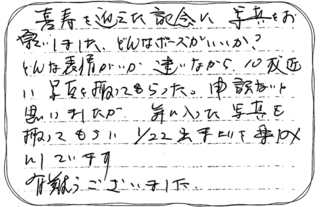 喜寿を迎えた記念に 写真をお
願いしました。どんなポーズがいいか?
どんな表情がいいか 迷いながら、10枚近
い写真を撮ってもらった。申訳ないと
思いましたが 気に入った写真を
撮ってもらい 1/22 出来上りを楽しみ
にしています
有難うございました。